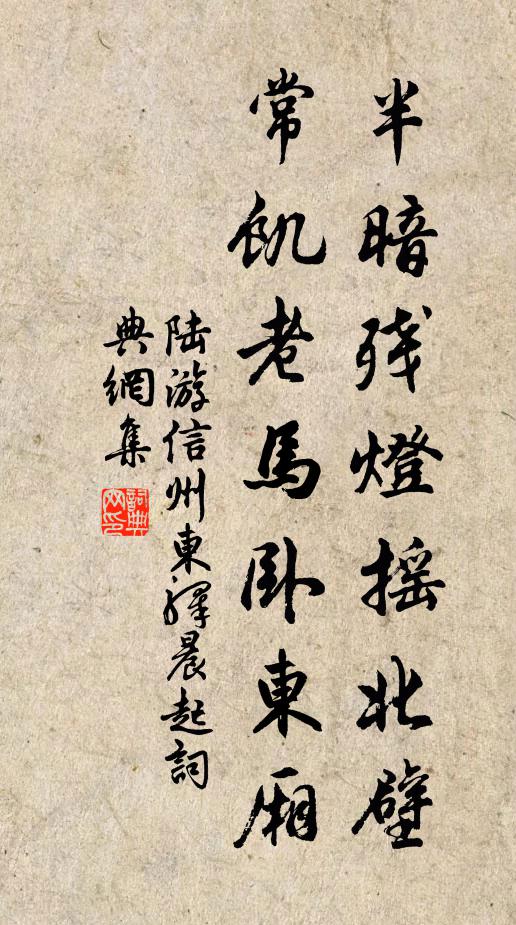 半暗殘燈摇北壁
常飢老馬卧東廂
陆游信州東驛晨起詞
典網集
詞典網印